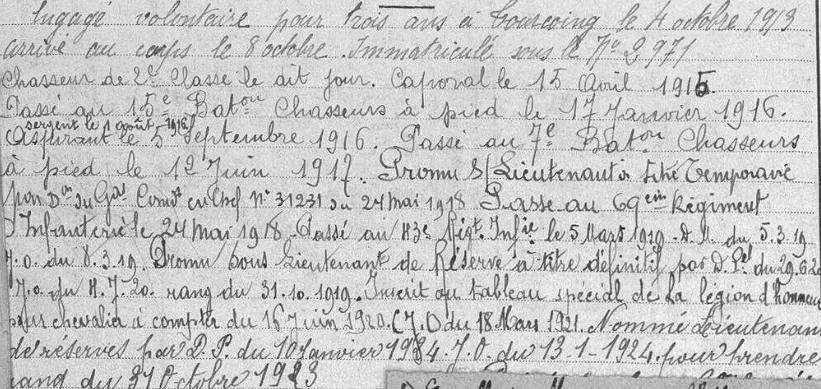 Engagé volontaire pour trois ans à Tourcoing le 4 octobre 1913
arrivé au corps le 8 octobre. Immatriculé sous le N° 2971
Chasseur de 2e Classe le dit jour. Caporal le 15 Avril 1915
Passé au 15e Baton Chasseurs à pied le 17 Janvier 1916.
Sergent le 1 août 1916
Aspirant le 5 Septembre 1916. Passé au 7e Baton Chasseurs
à pied le 12 Juin 1917. Promu S/Lieutenant à titre Temporaire
par Don du Gal Comdt en Chef N° 31231 du 24 Mai 1918 Passé au 69em Régiment
d'Infanterie le 24 Mai 1918. Passé au 43e Régt. Infie le 5 Mars 1919. D.M. du 5.3.19
J.O. du 8.3.19. Promu Sous Lieutenant de Réserve à titre définitif par D. Pel du 29.6.20
J.O. du 4.7.20. rang du 31.10.1919. Inscrit au tableau spécial de la légion d'honneur
pour chevalier à compter du 16 Juin 1920. (J.O du 18 Mars 1921. Nommé Lieutenant
de réserves par D.P. du 10 Janvier 1924. J.O. du 13-1-1924. pour prendre
rang du 31 Octobre 1923